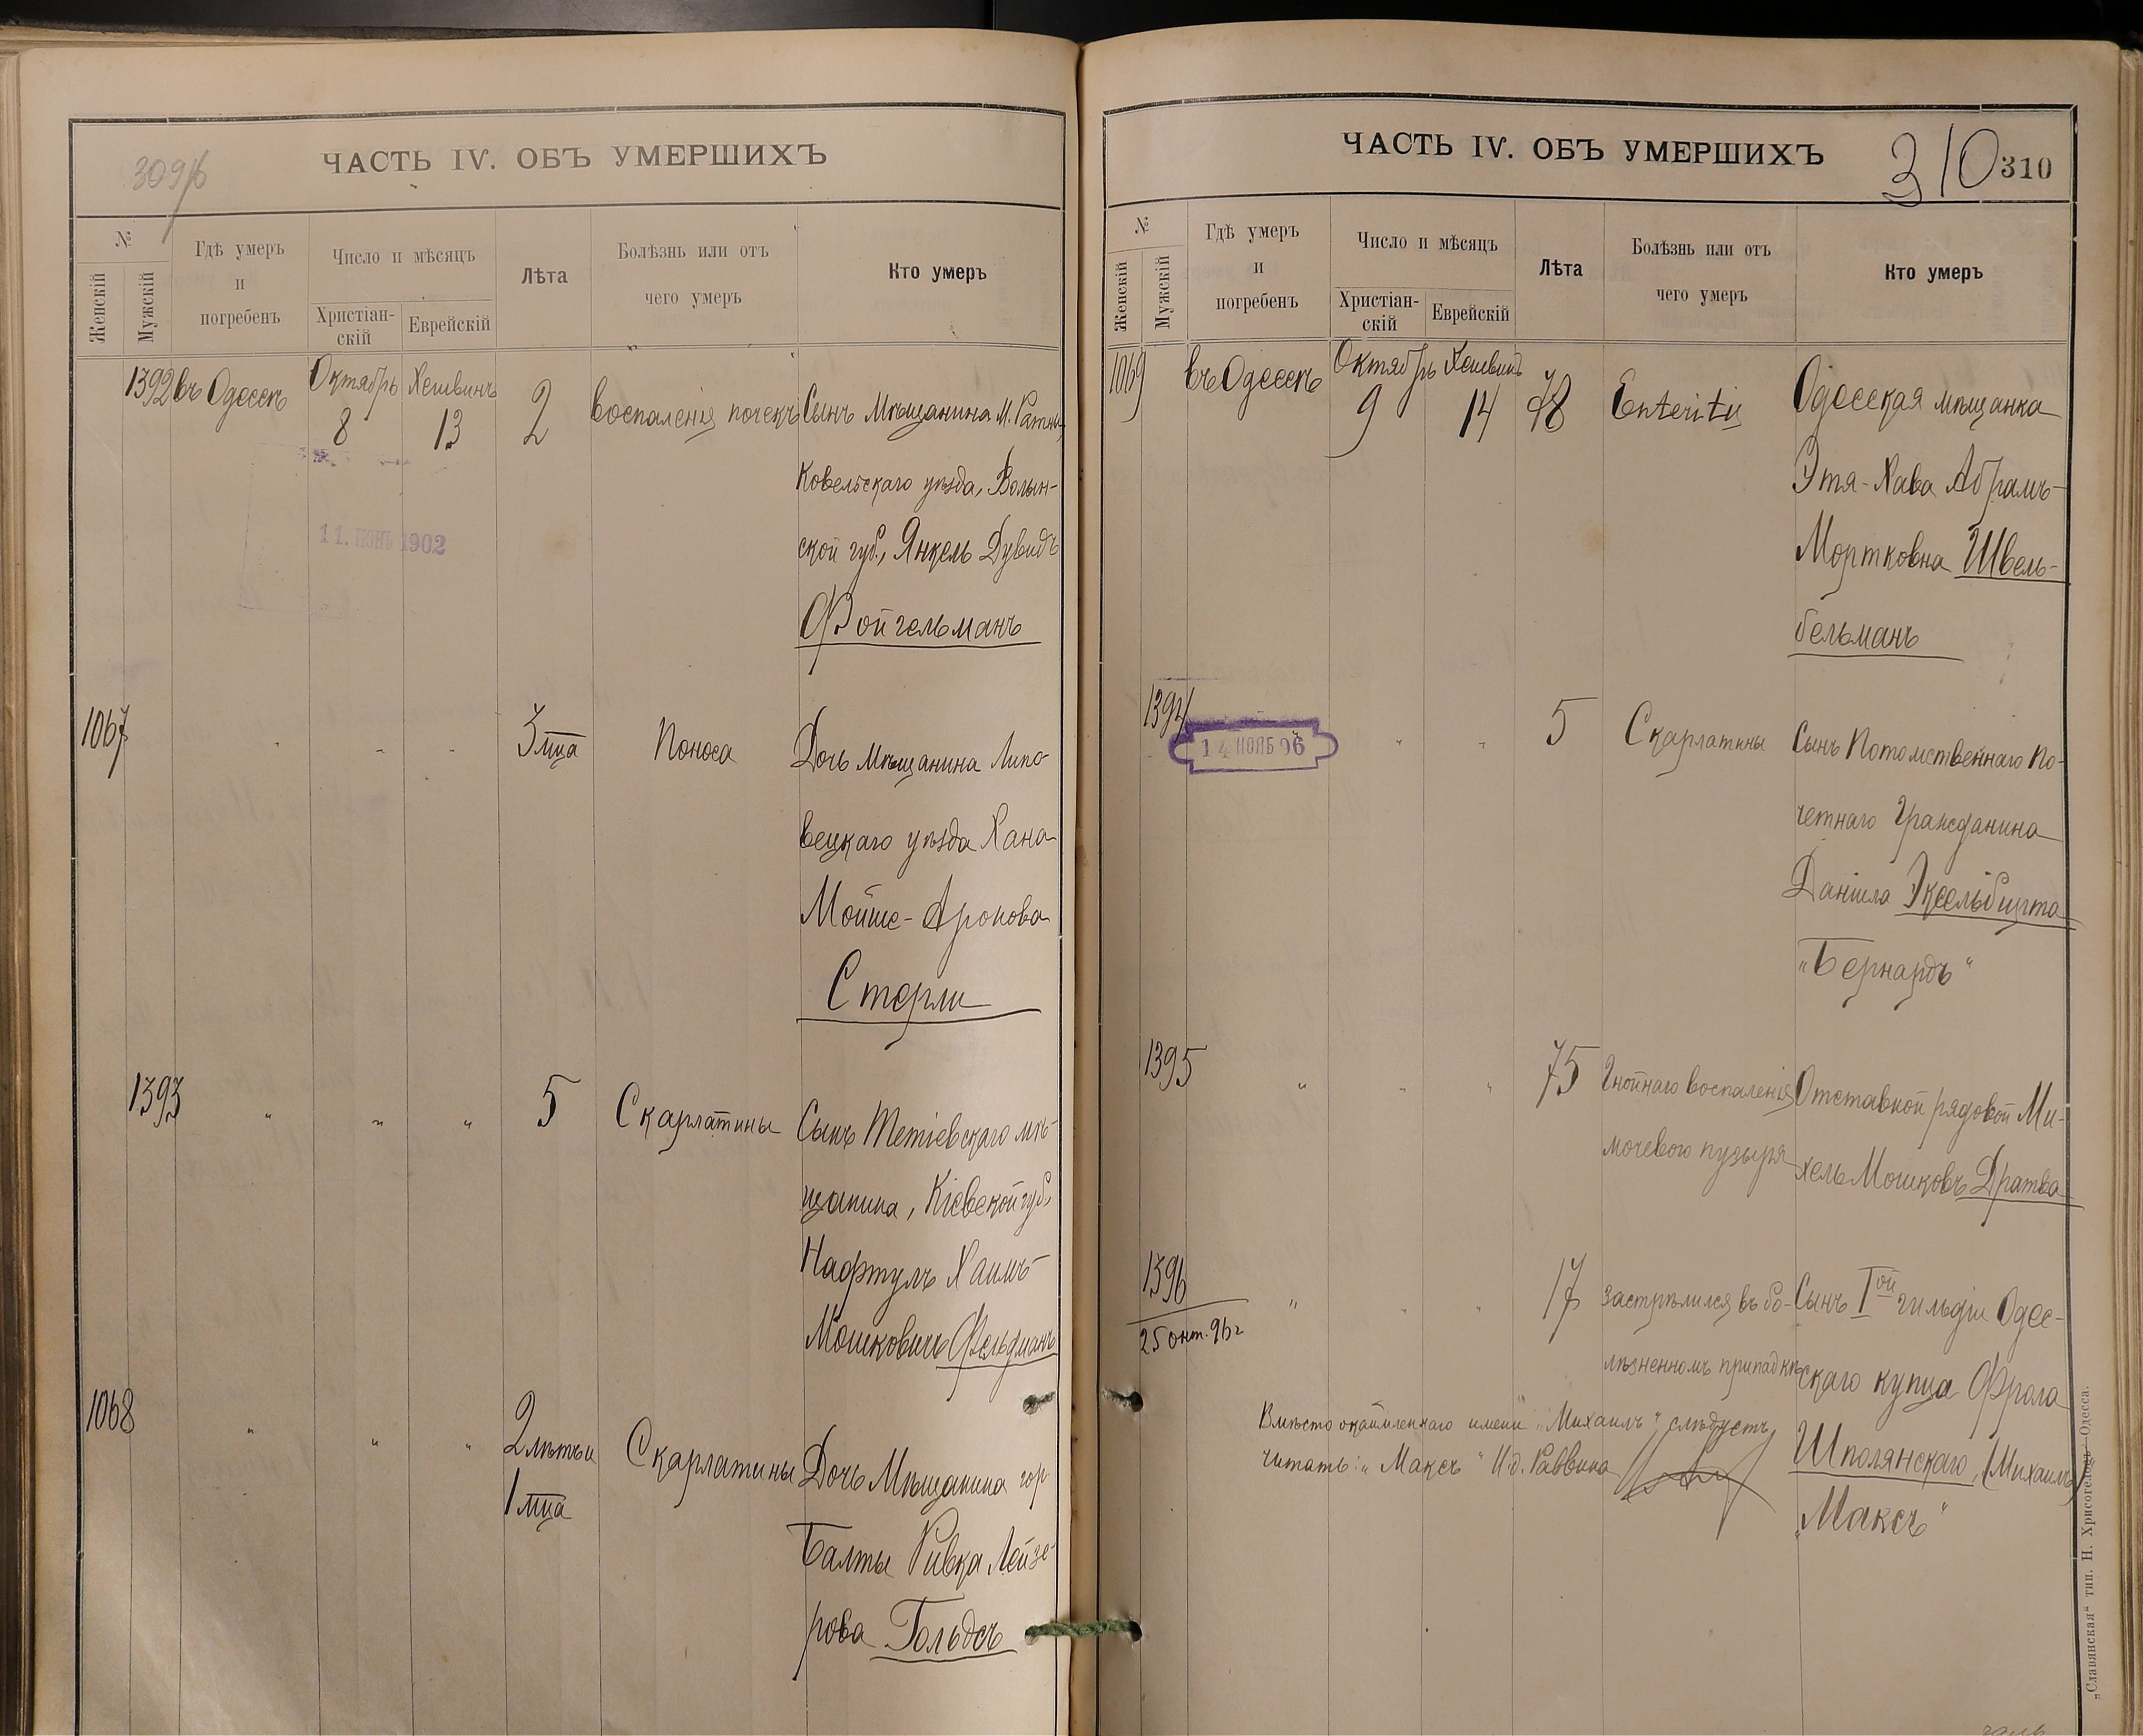 309/б
ЧАСТЬ IV. ОБЪ УМЕРШИХЪ
№
Женскій
Мужскій
Гдѣ умеръ
и
погребенъ
Число и мѣсяцъ
Христіан-
скій
Еврейскій
Лѣта
Болѣзнь или отъ
чего умеръ
Кто умеръ
1392 въ Одессѣ Октябрь 8 Хешвинъ 13 2 воспаленія почекъ Сынъ Мѣщанина М. Ратни,
Ковельскаго уѣзда, Волын-
ской губ., Янкель Дувидъ
Фойгельманъ
11. ІЮНЬ 1902
1067 " " " 3 мца Поноса Дочь Мѣщанина Липо-
вецкаго уѣзда Хана
Мойше-Аронова
Стерли
1393 " " " 5 Скарлатины Сынъ Тетіевскаго мѣ-
щанина, Кіевской губ.,
Нафтулъ Хаимъ-
Мошковичъ Фельдманъ
1068 " " " 2 лѣтъ и Скарлатины Дочь Мѣщанина гор.
1 мца
Балты Ривка Лейзе-
рова Гольдсъ
ЧАСТЬ IV. ОБЪ УМЕРШИХЪ
310
310
№
Женскій
Мужскій
Гдѣ умеръ
и
погребенъ
Число и мѣсяцъ
Христіан-
скій
Еврейскій
Лѣта
Болѣзнь или отъ
чего умеръ
Кто умеръ
1069 въ Одессѣ Октябрь 9 Хешвинъ 14 48 Enteritis Одесская мѣщанка
Этя-Хава Абрамъ-
Мортковна Швель-
бельманъ
1394 " " 5 Скарлатины Сынъ Потомственнаго По-
14 НОЯБ 96
четнаго Гражданина
Даніила Эксельбирта
„Бернардъ“
1395 " " " 75 Гнойнаго воспаленія Отставной рядовой Ми-
мочевого пузыря хель Мошковъ Дратва
1396 " " " 17 застрѣлился въ бо- Сынъ I ой гильдіи Одес-
25 окт. 96 г
лѣзненномъ припадкѣ скаго купца Фрола
Вмѣсто окаймленнаго имени „Михаилъ“ слѣдуетъ
читать: „Максъ“ И. д. Раввина
Шполянскаго, (Михаилъ)
„Максъ“
„Славянская“ тип. Н. Хрисогелосъ—Одесса.